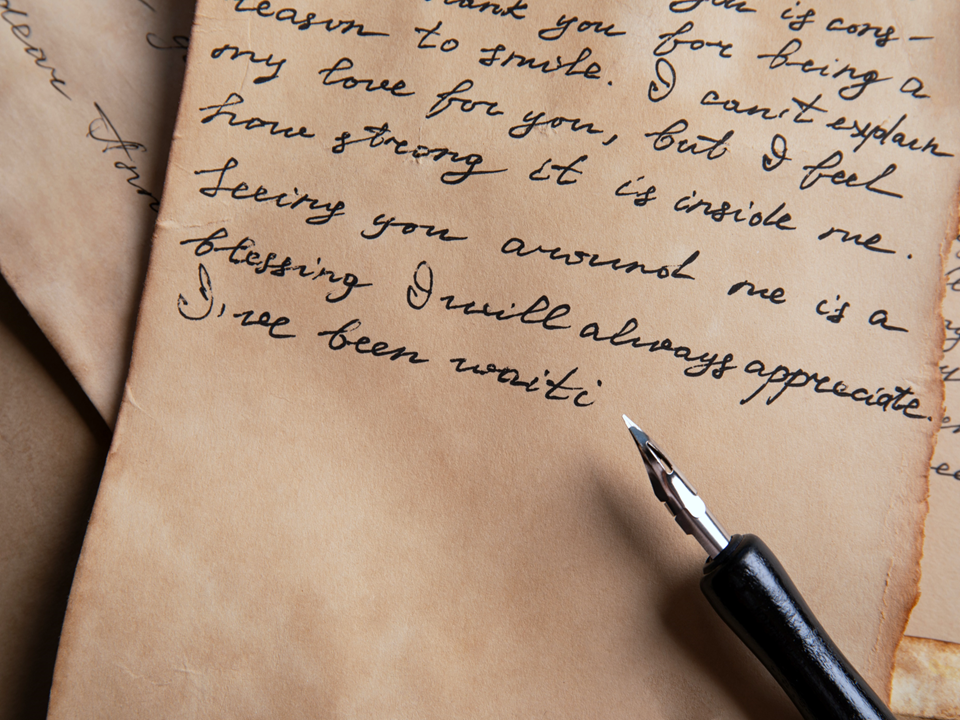 you is cons-
reason to smile. thank you for being a
my love for you, but I can't explain
how strong it is inside me. I feel
Seeing you around me is a
blessing I will always appreciate.
I've been waiti
dear Ann